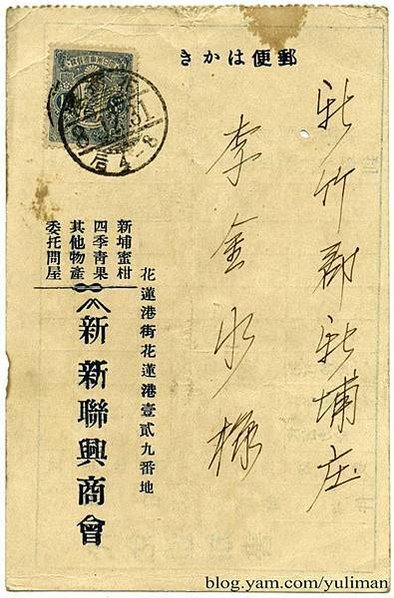 郵便はかき
新竹郡新埔庄
李金水様
花蓮港街花蓮港壹貳九番地
新埔蜜柑
四季青果
其他物產
委托問屋
新 新聯興商會
后4-8
blog.yam.com/yuliman